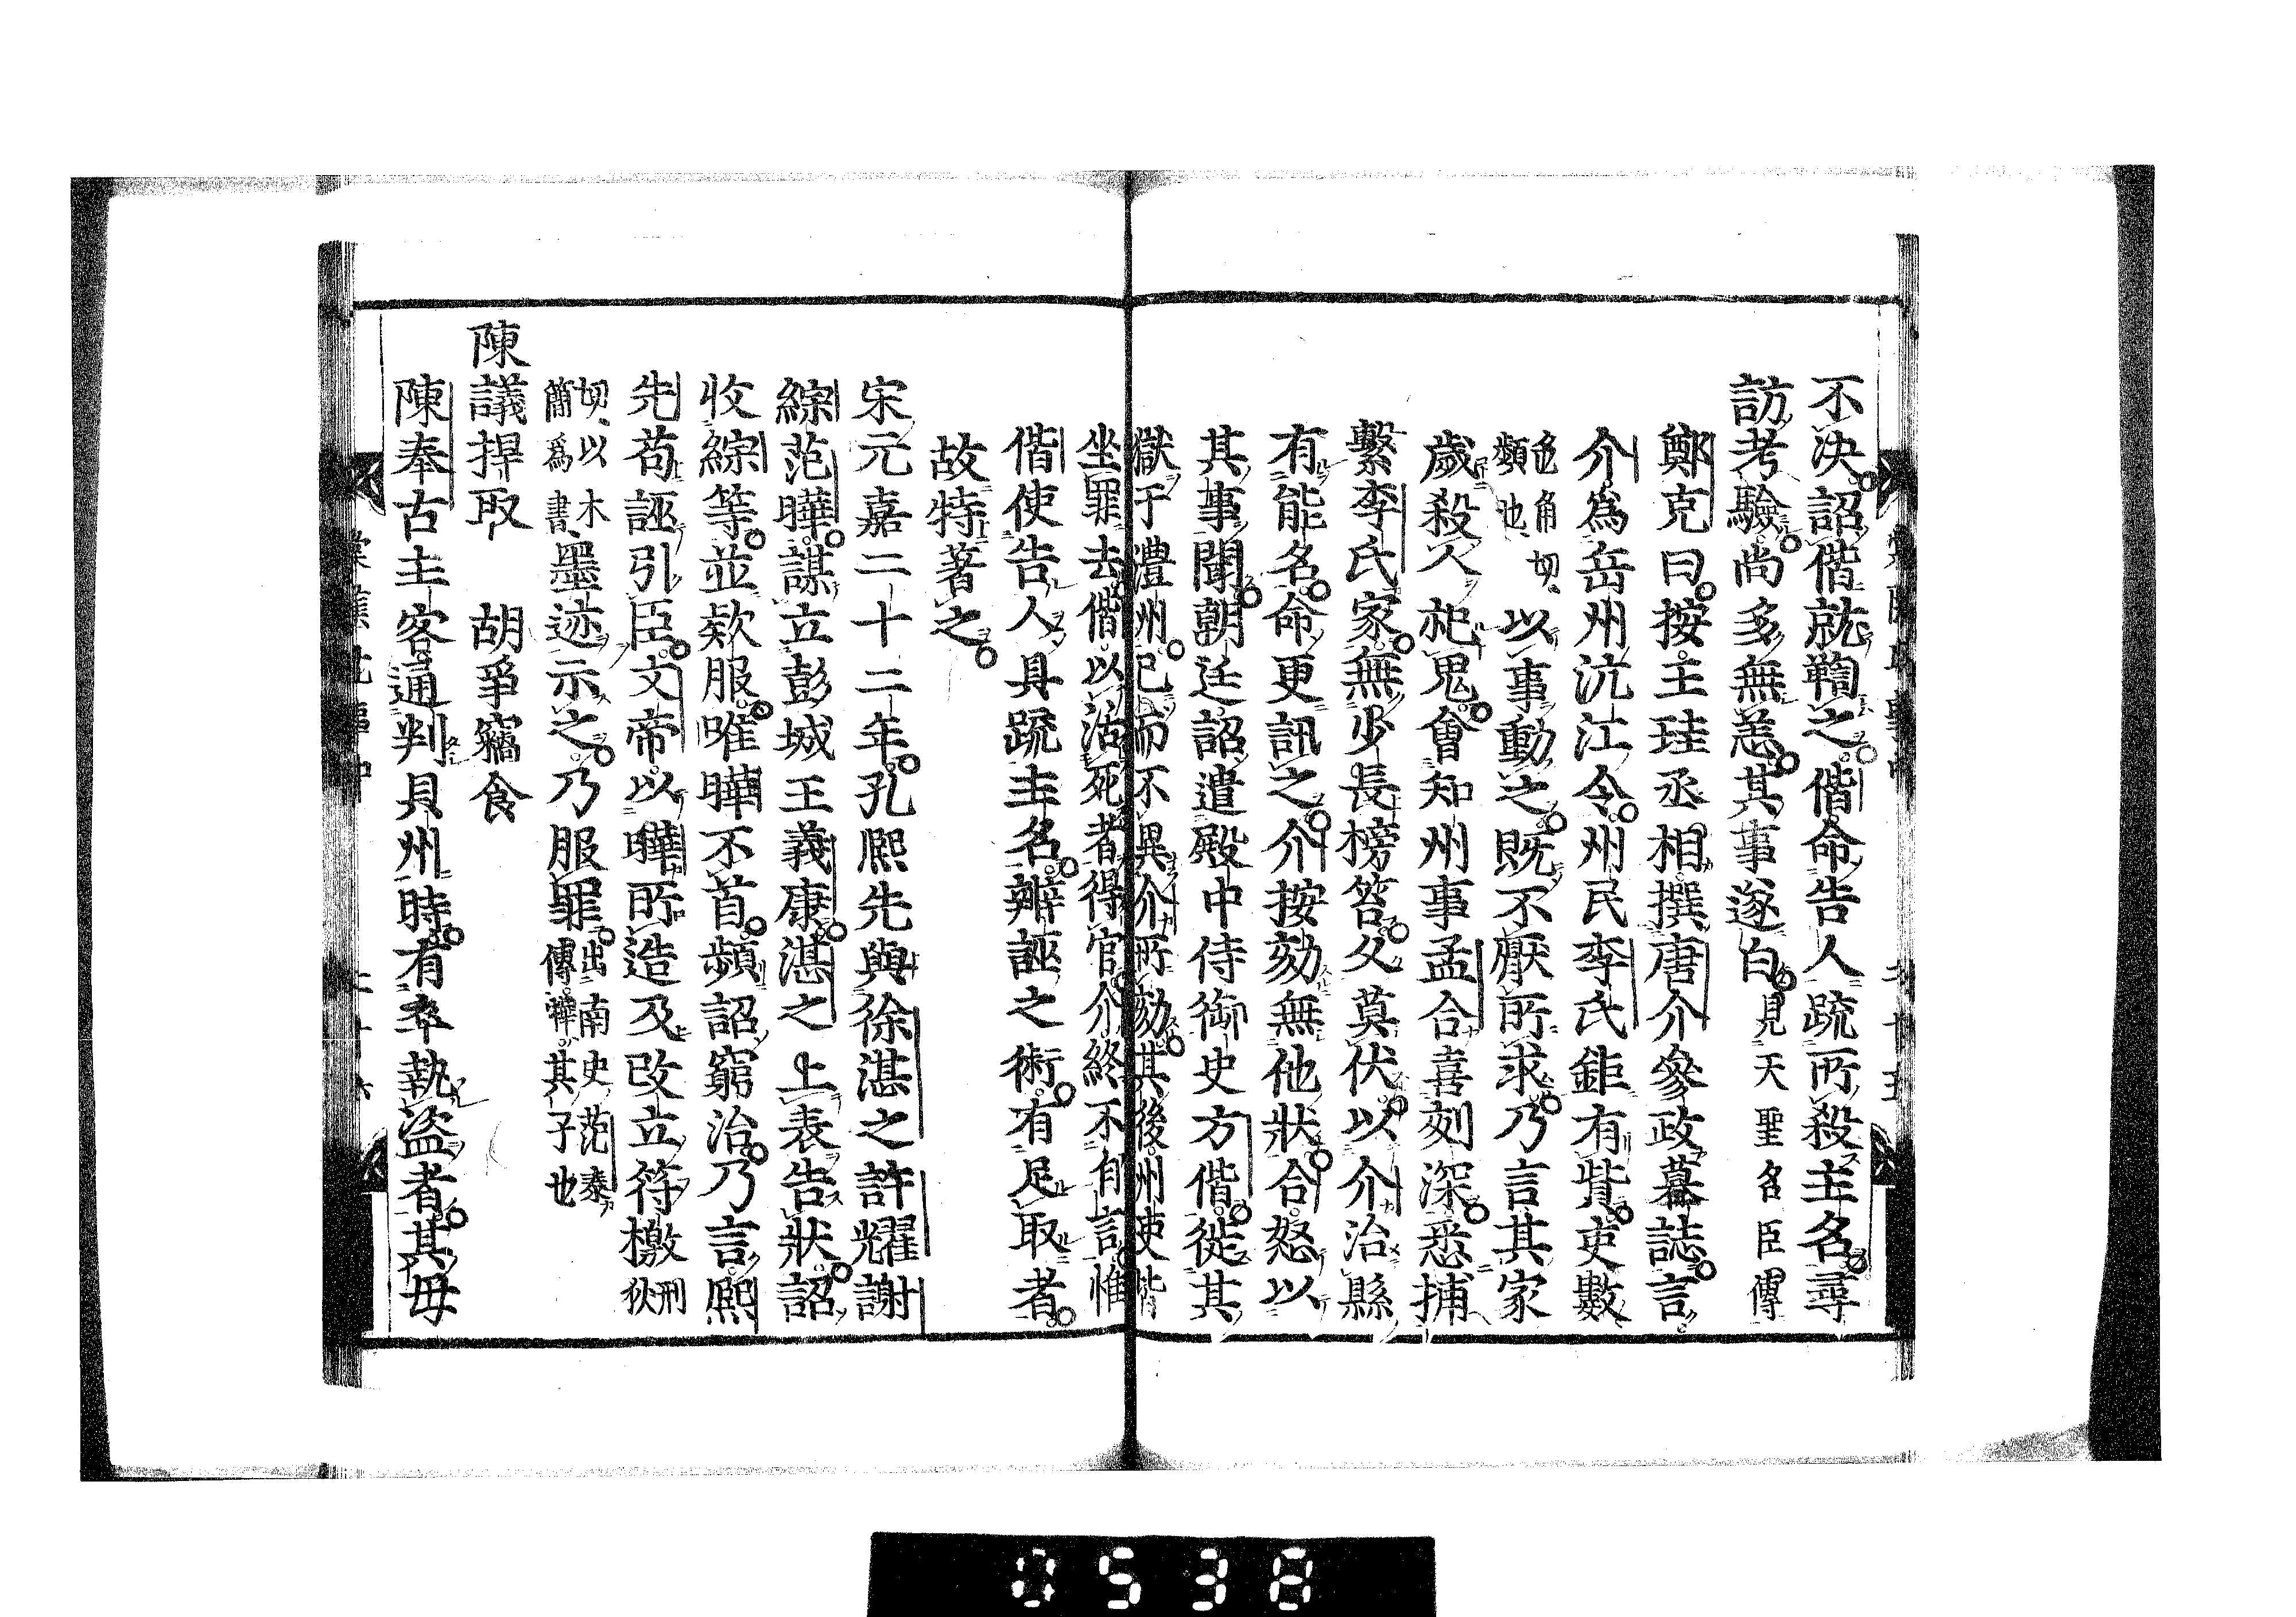 不決詔偕就鞫之偕命告人疏所殺主名尋
訪考驗尚多無恙其事遂白見天聖名臣傳
鄭克曰按王珪丞相撰唐介參政墓誌言
介為岳州沅江令州民李氏鉅有貲吏數
色角切頻也以事動之既不厭所求乃言其家
歲殺人祀鬼會知州事孟合喜刻深悉捕
繫李氏家無少長榜笞久莫伏以介治縣
有能名命更訊之介按劾無他狀合怒以
其事聞朝廷詔遣殿中侍御史方偕徙其
獄于澧州已而不異介所劾其後州吏皆
坐罪去偕以活死者得官介終不自言惟
偕使告人具疏主名辨誣之術有足取者
故特著之
宋元嘉二十二年孔熙先與徐湛之許耀謝
綜范曄謀立彭城王義康湛之上表告狀詔
收綜等並欵服唯曄不首頻詔窮治乃言熙
先苟誣引臣文帝以曄所造及改立符檄刑狄
切以木簡為書墨迹示之乃服罪出南史范泰傳曄其子也
陳議捍取　胡爭竊食
陳奉古主客通判貝州時有卒執盜者其毋